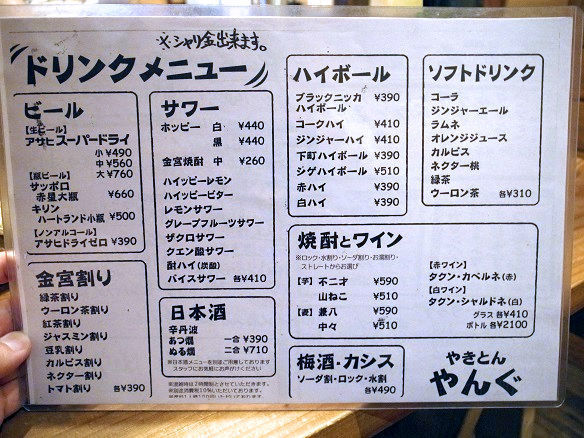 ※シャリ金出来ます。
ドリンクメニュー
ビール
【生ビール】
アサヒスーパードライ
小 ¥490
中 ¥560
大 ¥760
【瓶ビール】
サッポロ
赤星大瓶 ¥660
キリン
ハートランド小瓶 ¥500
【ノンアルコール】
アサヒドライゼロ ¥390
金宮割り
緑茶割り
ウーロン茶割り
紅茶割り
ジャスミン割り
豆乳割り
カルピス割り
ネクター割り
トマト割り 各¥390
サワー
ホッピー 白 ¥440
黒 ¥440
金宮焼酎 中 ¥260
ハイッピーレモン
ハイッピービター
レモンサワー
グレープフルーツサワー
ザクロサワー
クエン酸サワー
酎ハイ(炭酸)
バイスサワー 各¥410
日本酒
辛丹波
あつ燗 一合 ¥390
ぬる燗 二合 ¥710
※日本酒メニューを別途ご用意しております
スタッフにお気軽にお声がけください
ハイボール
ブラックニッカ ¥390
ハイボール
コークハイ ¥410
ジンジャーハイ ¥410
下町ハイボール ¥390
ジゲハイボール ¥510
赤ハイ ¥390
白ハイ ¥390
ソフトドリンク
コーラ
ジンジャーエール
ラムネ
オレンジジュース
カルピス
ネクター桃
緑茶
ウーロン茶 各¥310
焼酎とワイン
※ロック・水割り・ソーダ割り・お湯割り・
ストレートからお選び
【芋】 不二才 ¥590
山ねこ ¥510
【麦】 兼八 ¥590
中々 ¥510
【赤ワイン】
タクン・カベルネ(赤)
【白ワイン】
タクン・シャルドネ(白)
グラス 各¥410
ボトル 各¥2100
梅酒・カシス
ソーダ割・ロック・水割
各¥490
やきとん
やんぐ